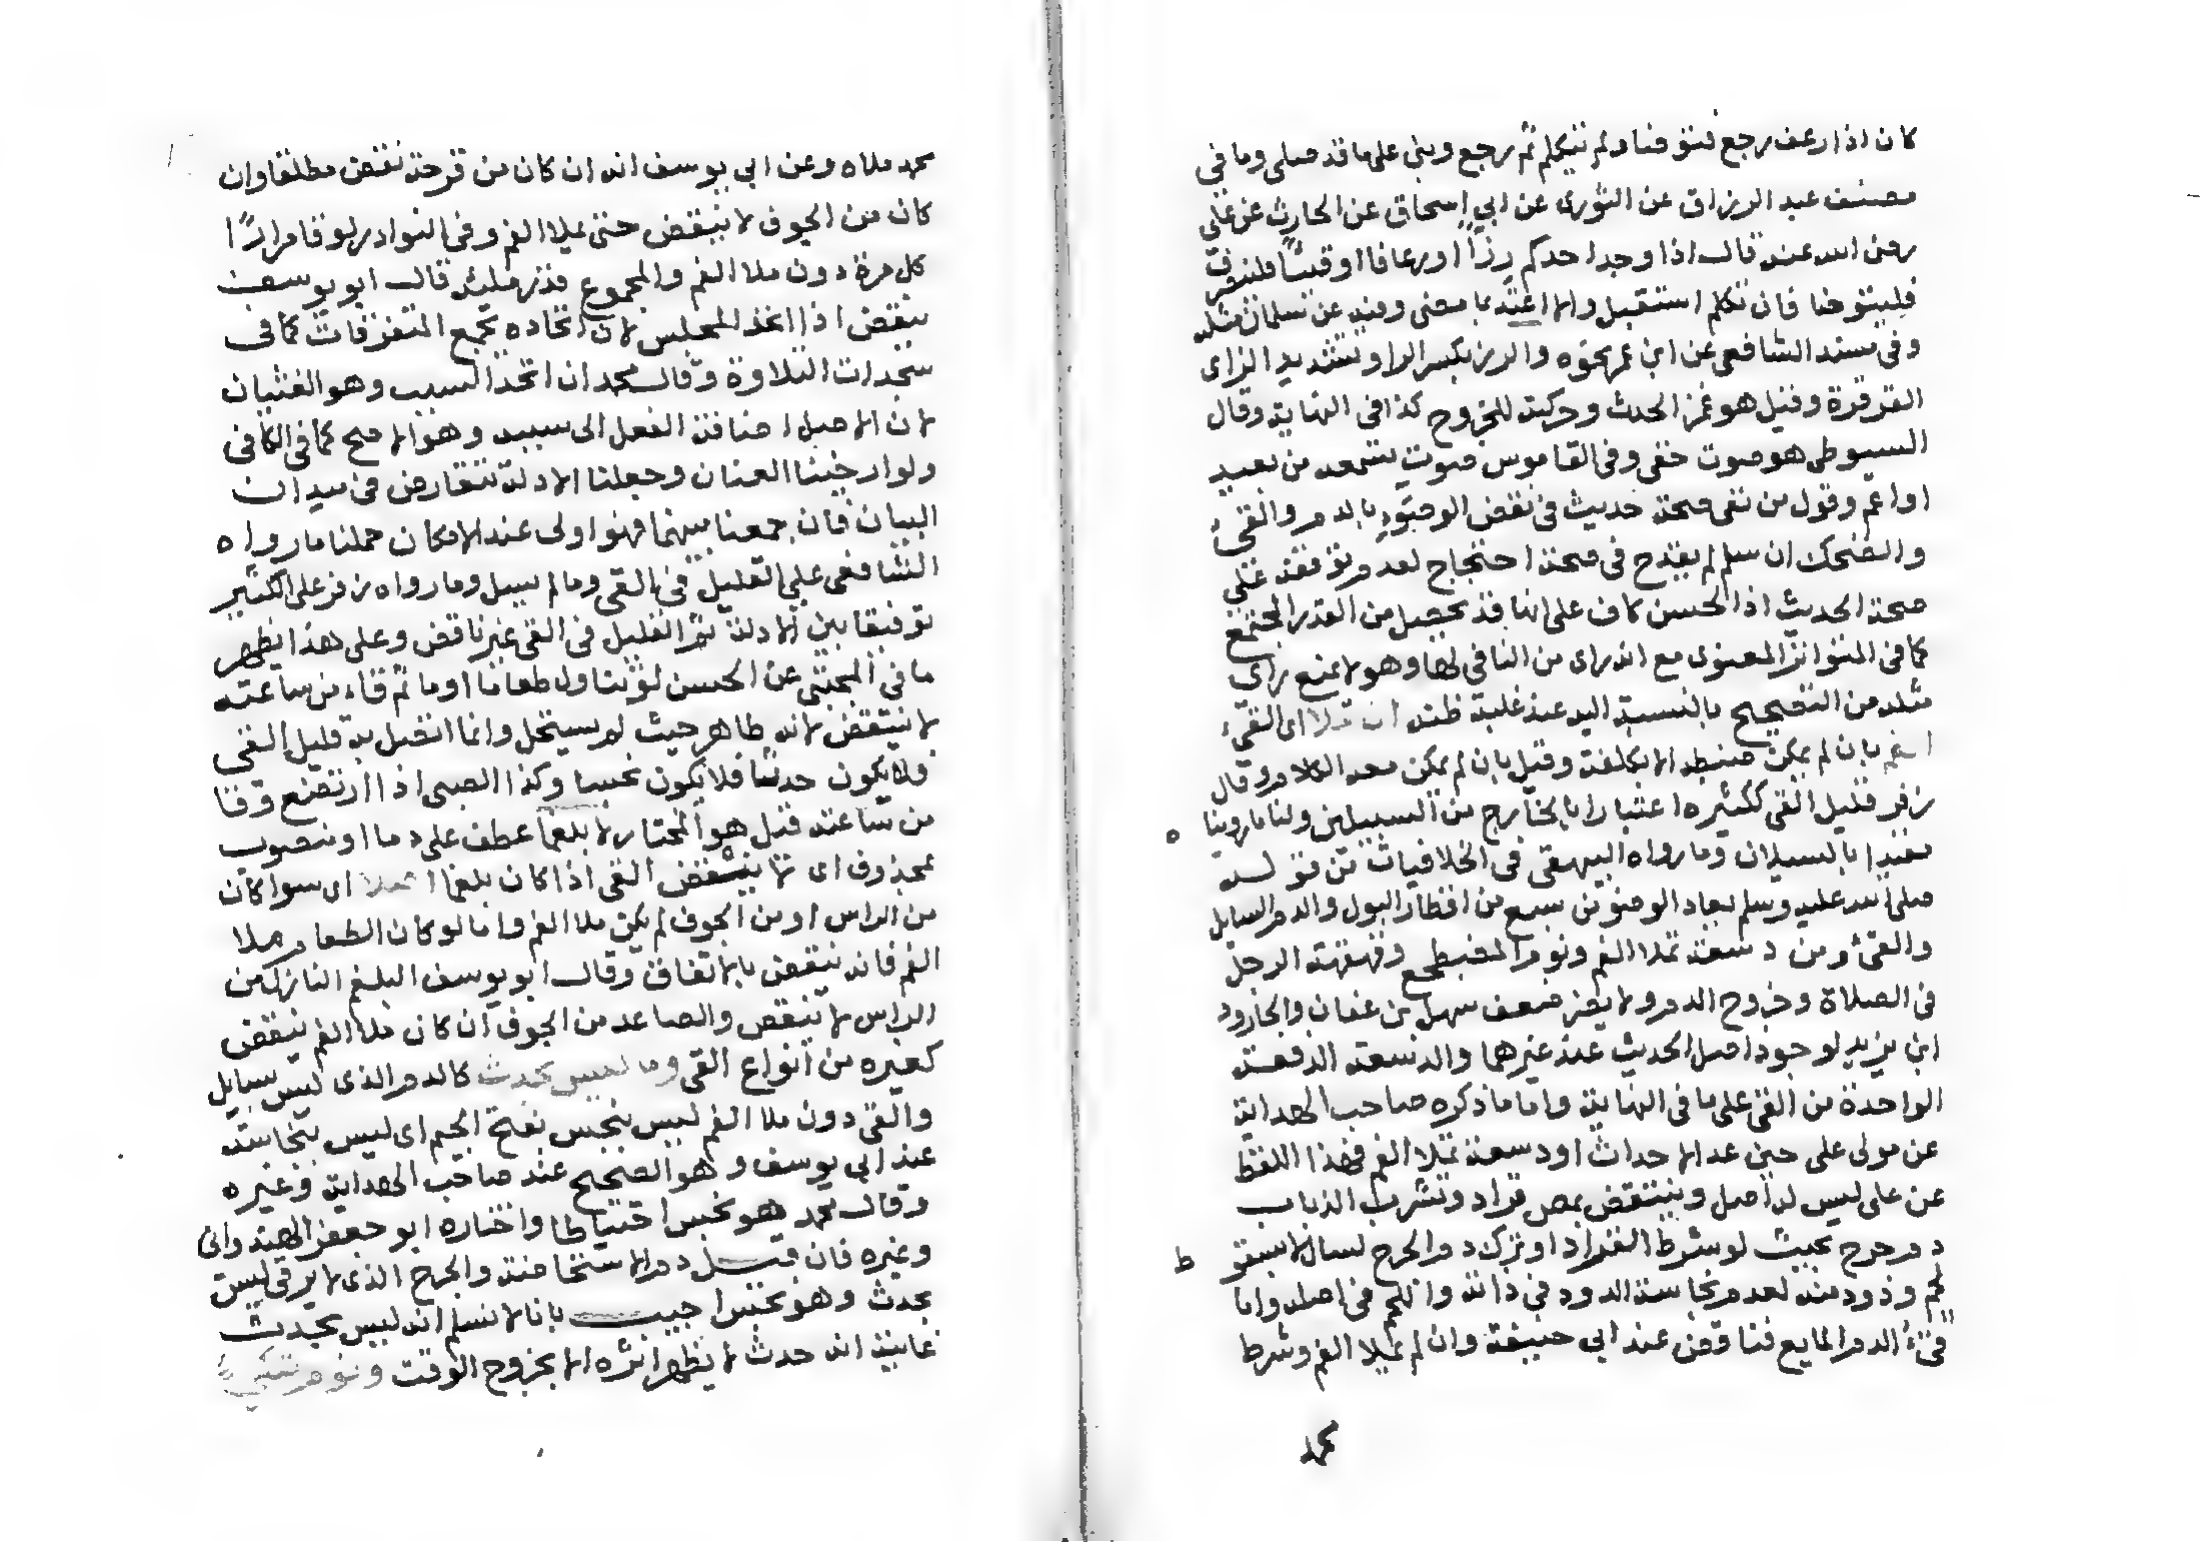 كان اذا رعف رجع فتوضا ولم يتكلم ثم رجع وبنى على ما قد صلى وما في
مصنف عبد الرزاق عن الثورى عن ابي اسحاق عن الحارث عن علي
رضى الله عنه قال اذا وجد احدكم رزًا او رعافا او قيئًا فلينصرف
فليتوضا فان تكلم استقبل والا اعتد بما مضى وفيه عن سلمان مثله
وفى مسند الشافعي عن ابن عمر نحوه والرز بكسر الرا وتشديد الزاى
القرقرة وقيل هو غمز الحدث وحركته للخروج كذا فى النهاية وقال
السيوطى هو صوت خفى وفى القاموس صوت تسمعه من بعيد
او اعم وقول من نفى صحة حديث فى نقض الوضوء بالدم والقيء
والضحك ان سلم لم يقدح فى صحة احتجاج لعدم توقفه على
صحة الحديث اذ الحسن كاف على انها قد يحصل من القدر المجتمع
كما فى المتواتر المعنوى مع انه راى من النافى لها وهو لا يمنع راى
مثله من التصحيح بالنسبة اليه عند غلبة ظنه ان ملا اى القيء
الفم بان لم يمكن ضبطه الا بكلفة وقيل بان لم يمكن معه الكلام وقال
زفر قليل القى ككثيره اعتبارا بالخارج من السبيلين ولنا ما روينا
مقيدا بالسيلان وما رواه البيهقى فى الخلافيات من قوله
صلى الله عليه وسلم يعاد الوضو من سبع من اقطار البول والدم السايل
والقئ ومن دسعة تملا الفم ونوم المضطجع وقهقهة الرجل
فى الصلاة وخروج الدم ولا يضر ضعف سهل بن عفان والجارود
ابن يزيد لوجود اصل الحديث عند غيرهما والدسعة الدفعة
الواحدة من القئ على ما فى النهاية واما ما ذكره صاحب الهداية
عن مولى على حين عد الاحداث او دسعة تملا الفم فهذا اللفظ
عن على ليس له اصل وينتقض بمص قراد وتشرب الذباب
دم جرح بحيث لو سقط القراد او ترك دم الجرح لسال لا بسقو
لحم ودود منه لعدم نجاسة الدود فى ذاته واللحم فى اصله واما
قئ الدم المايع فناقض عند ابي حنيفة وان لم يملا الفم وشرط
محمد
محمد ملاه وعن ابي يوسف انه ان كان من قرحة نقض مطلقا وان
كان من الجوف لا ينقض حتى يملا الفم وفى النوادر لو قا مرارًا
كل مرة دون ملا الفم والمجموع قدر مليه قال ابو يوسف
ينقض اذا اتحد المجلس لان اتحاده يجمع المتفرقات كما فى
سجدات التلاوة وقال محمد ان اتحد السبب وهو الغثيان
لان الاصل اضافة الفعل الى سببه وهو الاصح كما فى الكافى
ولو ارخينا العنان وجعلنا الادلة تتعارض فى ميدان
البيان فان جمعنا بينهما فهو اولى عند الامكان حملنا ما رواه
الشافعى على القليل فى القى وما لم يسل وما رواه زفر على الكثير
توفيقا بين الادلة ثم القليل فى القى غير ناقض وعلى هذا يظهر
ما فى المجتبى عن الحسن لو تناول طعاما او ما ثم قاء من ساعته
لا ينتقض لانه طاهر حيث لم يستحل وانما اتصل به قليل القى
ولا يكون حدثا فلا يكون نجسا وكذا الصبى اذا ارتضع وقا
من ساعته قيل هو المختار لا بلغما عطف على دما او منصوب
بمحذوف اى لا ينقض القى اذا كان بلغما اصلا اى سوا كان
من الراس او من الجوف لم يكن ملا الفم واما لو كان الطعام ملا
الفم فانه ينقض بالاتفاق وقال ابو يوسف البلغم النازل من
الراس لا ينقض والصاعد من الجوف ان كان ملا الفم ينقض
كغيره من انواع القى وما ليس بحدث كالدم الذى ليس بسايل
والقى دون ملا الفم ليس بنجس بفتح الجيم اى ليس بنجاسة
عند ابى يوسف وهو الصحيح عند صاحب الهداية وغيره
وقال محمد هو نجس احتياطا واختاره ابو جعفر الهندوانى
وغيره فان قيل دم الاستحاضة والجرح الذى لا يرقى ليس
بحدث وهو نجس اجيب بانا لا نسلم انه ليس بحدث
غايته انه حدث لا يظهر اثره الا بخروج الوقت ونوم متكئ